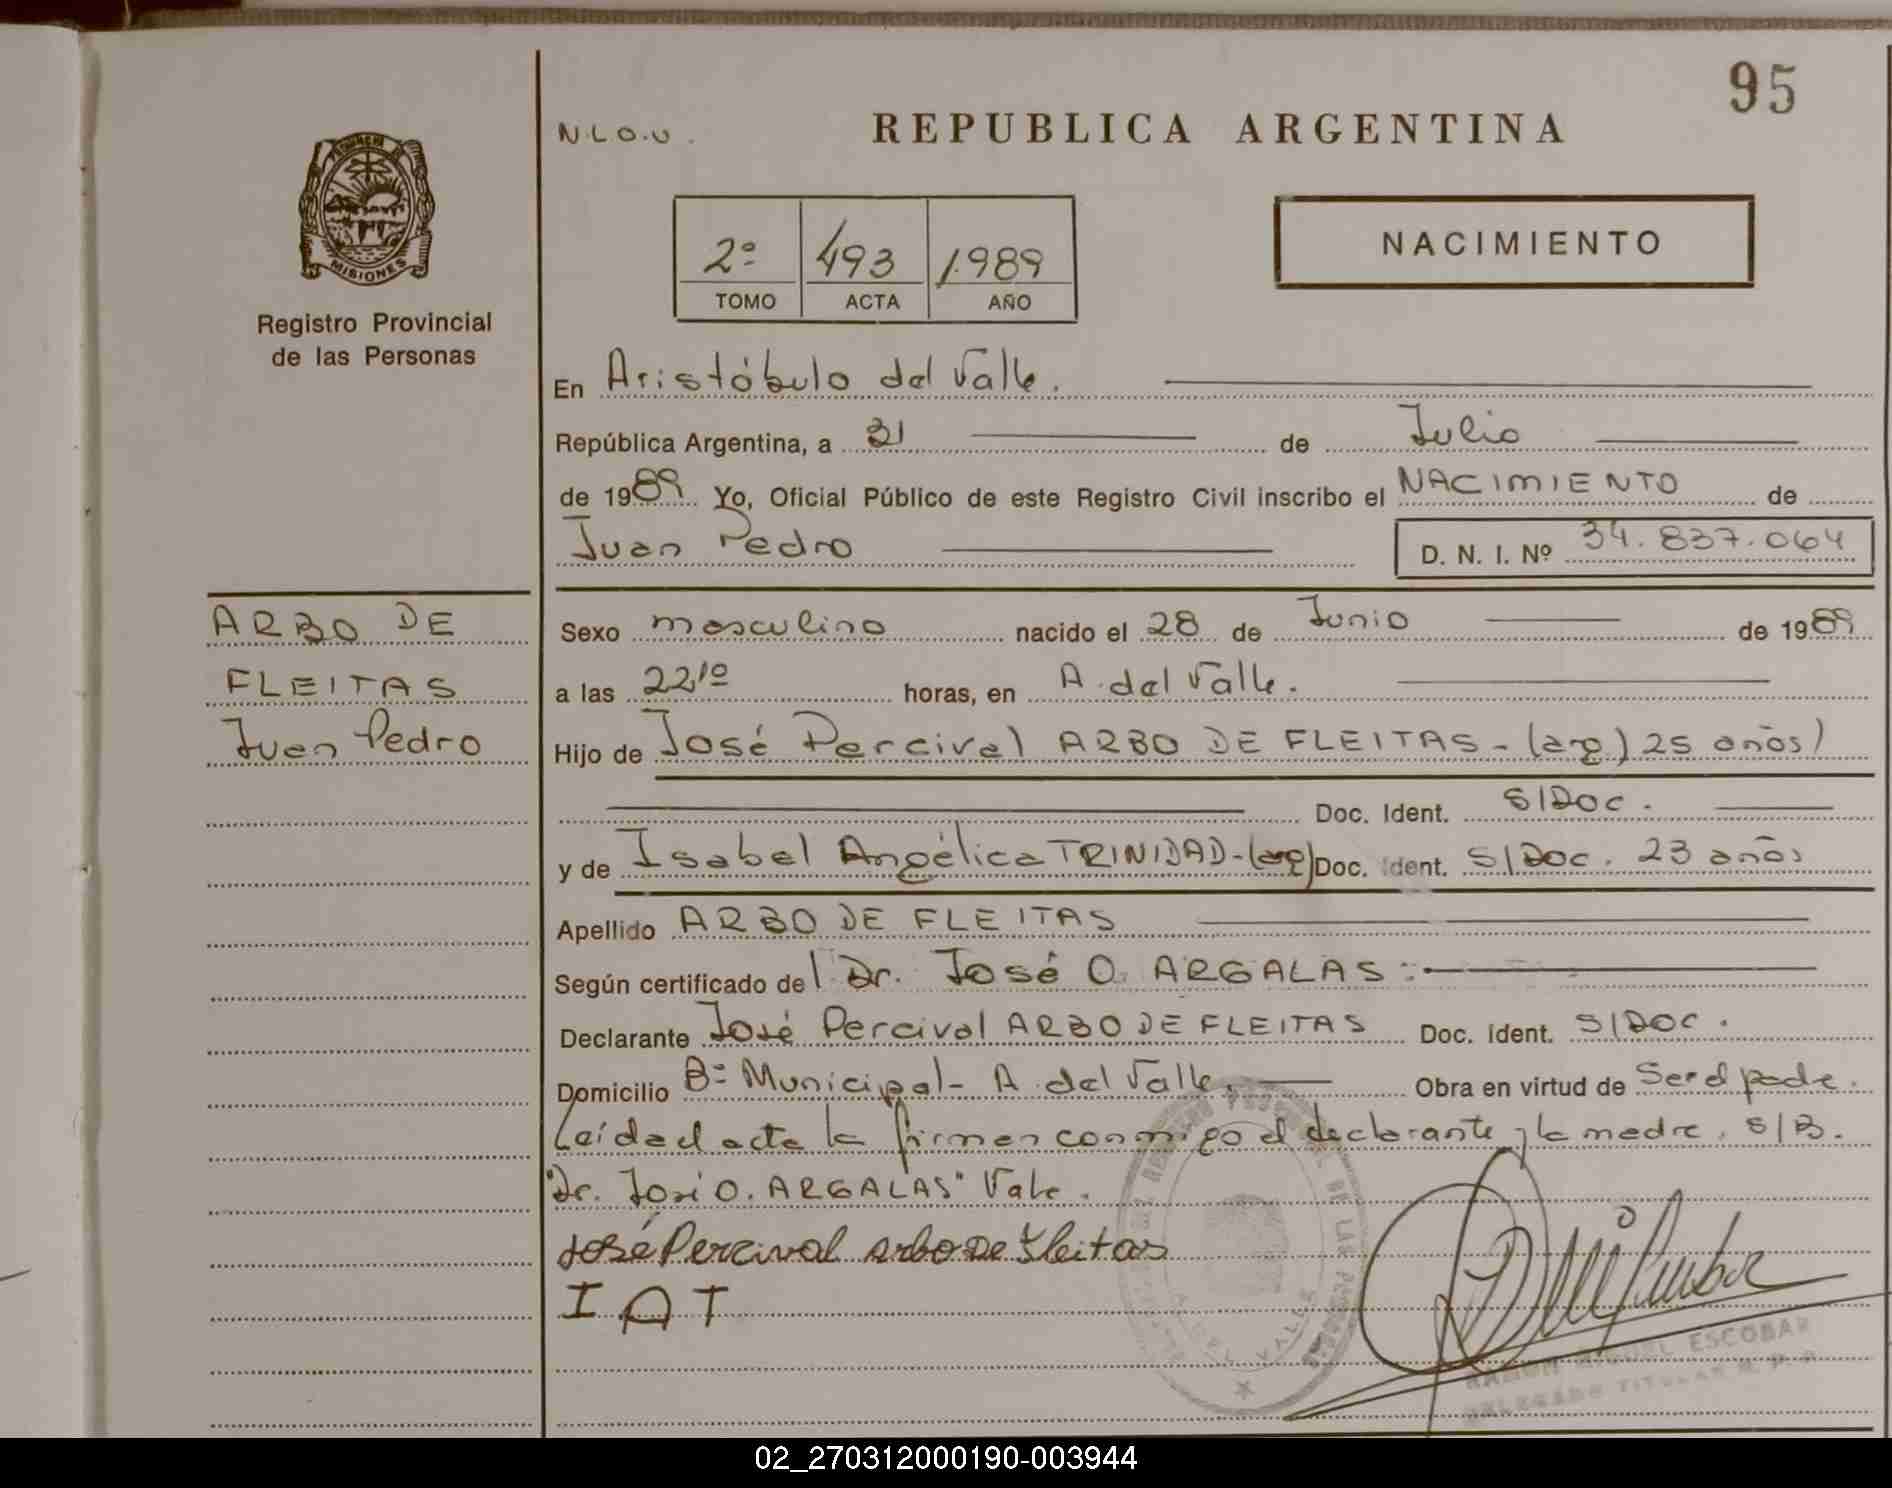 95
N.L.O.U.
REPUBLICA ARGENTINA
MISIONES
Registro Provincial
de las Personas
2º 493 1989
TOMO ACTA AÑO
NACIMIENTO
En Aristóbulo del Valle.
República Argentina, a 31 de Julio
de 1989 Yo, Oficial Público de este Registro Civil inscribo el NACIMIENTO de
Juan Pedro D. N. I. Nº 34.837.064
ARBO DE
FLEITAS
Juan Pedro
Sexo masculino nacido el 28 de Junio de 1989
a las 22,10 horas, en A. del Valle.
Hijo de José Percival ARBO DE FLEITAS - (arg.) 25 años)
Doc. Ident. S/Doc.
y de Isabel Angélica TRINIDAD - (arg) Doc. Ident. S/Doc. 23 años
Apellido ARBO DE FLEITAS
Según certificado del Dr. José O. ARGALAS :
Declarante José Percival ARBO DE FLEITAS Doc. Ident. S/Doc.
Domicilio Bº Municipal - A. del Valle. Obra en virtud de Ser el padre.
Leída el acta la firman conmigo el declarante y la madre. S/B.
"Dr. José O. ARGALAS" Vale.
José Percival Arbo De Fleitas
I A T
A. DEL VALLE
RAMON MIGUEL ESCOBAR
DELEGADO TITULAR R. P. P.
02_270312000190-003944